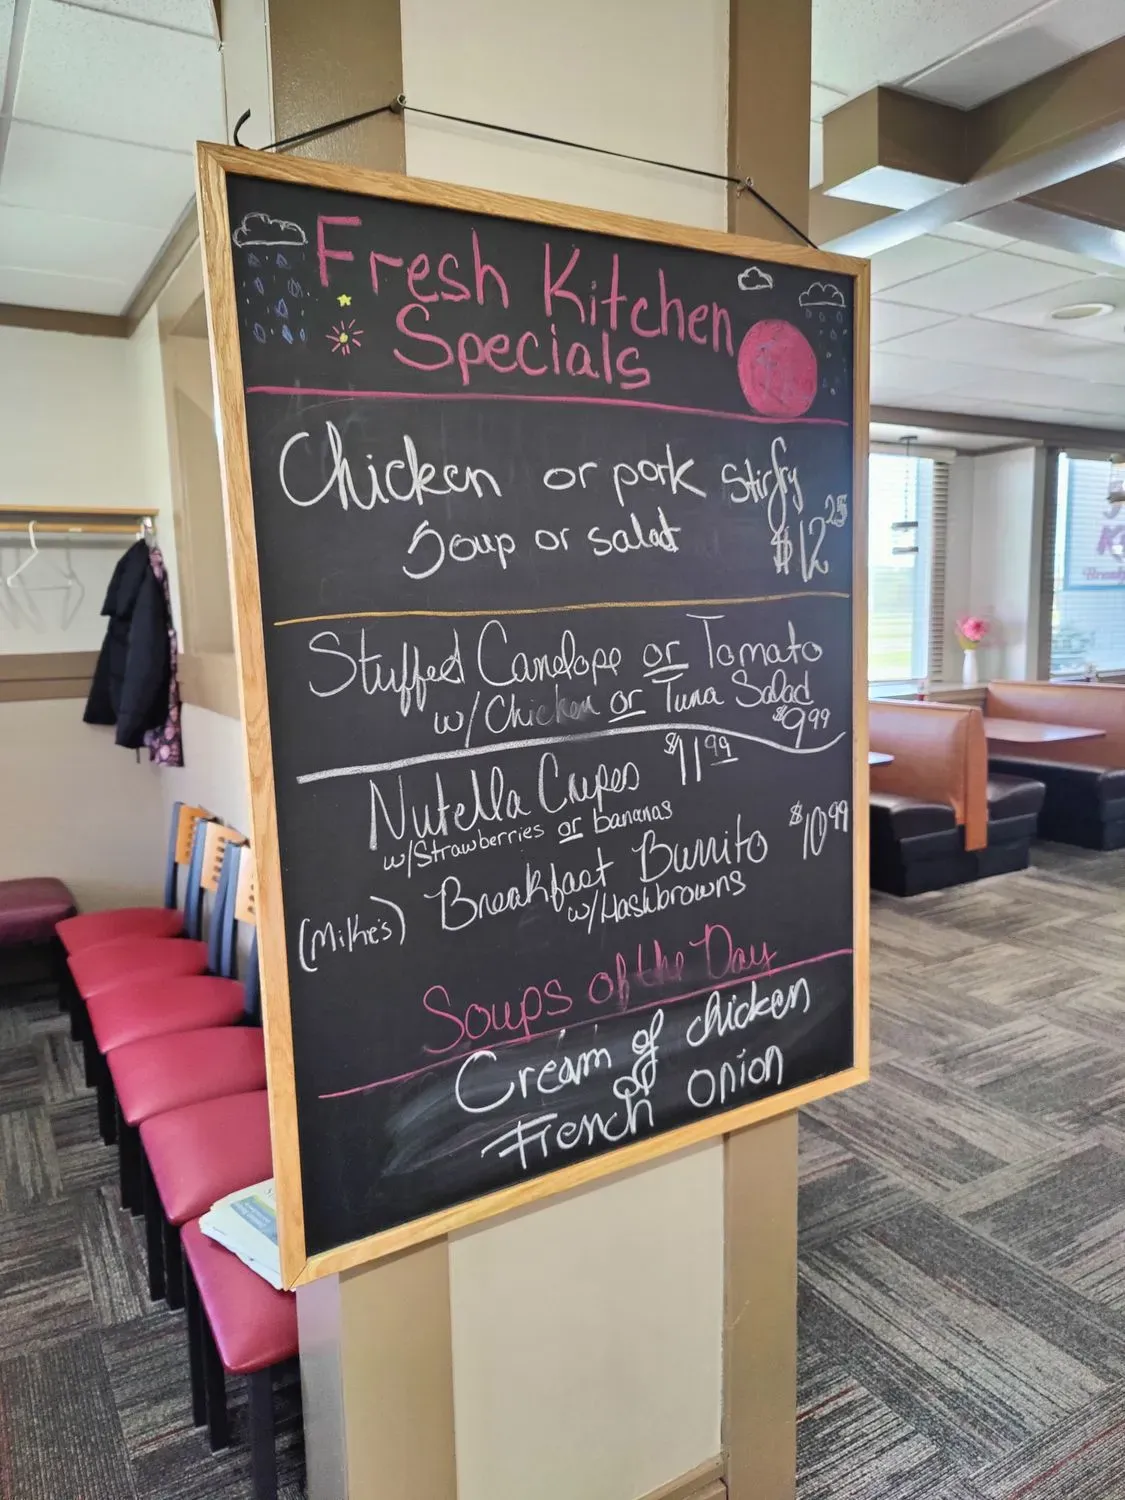 Fresh Kitchen
Specials
Chicken or pork Stirfry
Soup or salad $12.25
Stuffed Canelope or Tomato
w/Chicken or Tuna Salad
$9.99
Nutella Crepes $11.99
w/Strawberries or bananas
(Mike's) Breakfast Burrito $10.99
w/Hashbrowns
Soups of the Day
Cream of chicken
French onion